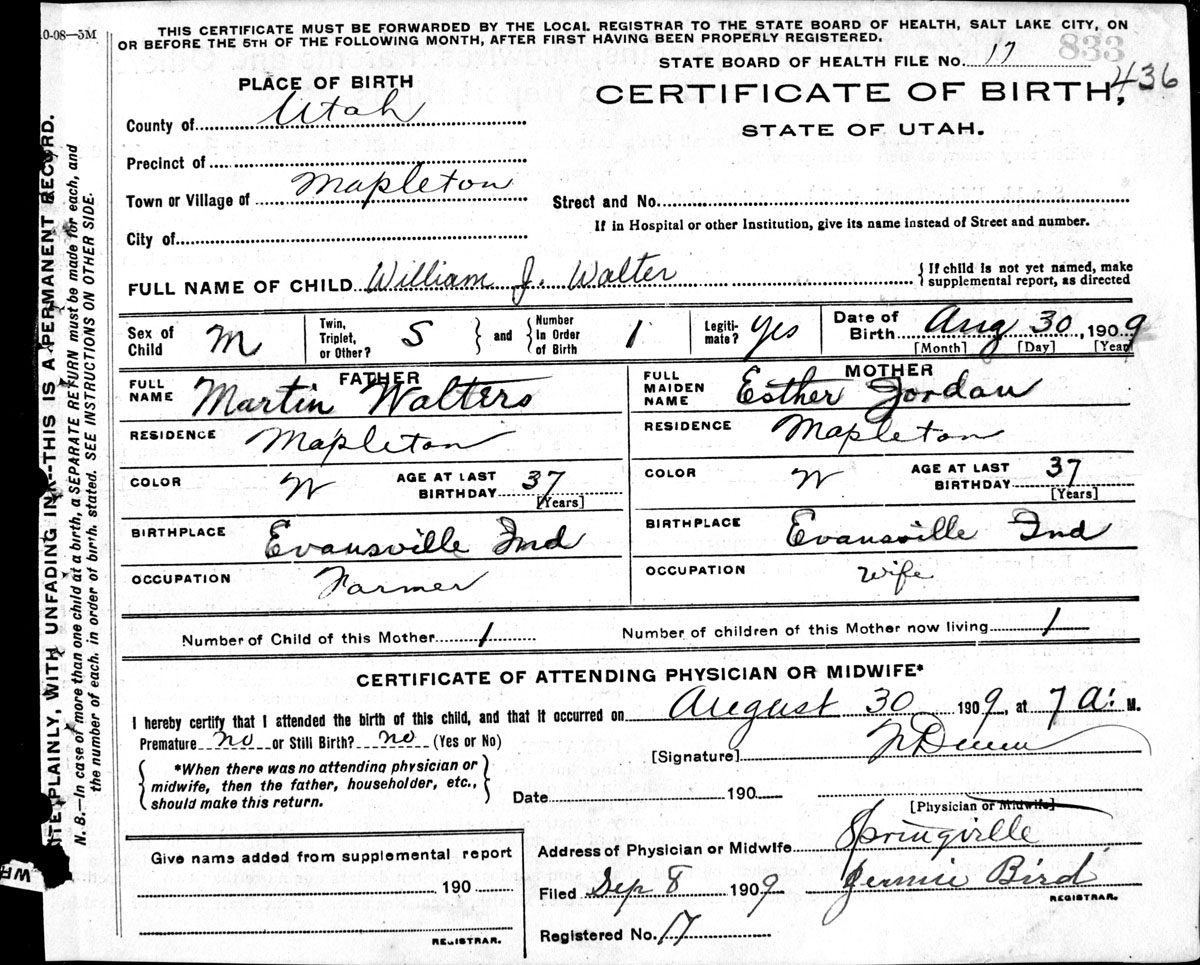 10-08—5M
THIS CERTIFICATE MUST BE FORWARDED BY THE LOCAL REGISTRAR TO THE STATE BOARD OF HEALTH, SALT LAKE CITY, ON
OR BEFORE THE 5TH OF THE FOLLOWING MONTH, AFTER FIRST HAVING BEEN PROPERLY REGISTERED.
STATE BOARD OF HEALTH FILE No. 17 833
436
PLACE OF BIRTH
CERTIFICATE OF BIRTH,
STATE OF UTAH.
County of Utah
Precinct of
Town or Village of Mapleton
Street and No.
If in Hospital or other Institution, give its name instead of Street and number.
City of
FULL NAME OF CHILD William J. Walter
{ If child is not yet named, make
supplemental report, as directed
Sex of Child M
Twin, Triplet, or Other? S } and { Number In Order of Birth 1
Legiti-mate? Yes
Date of Birth Aug 30, 1909
[Month] [Day] [Year]
FATHER
FULL NAME Martin Walters
RESIDENCE Mapleton
COLOR W AGE AT LAST BIRTHDAY 37
[Years]
BIRTHPLACE Evansville Ind
OCCUPATION Farmer
MOTHER
FULL MAIDEN NAME Esther Jordan
RESIDENCE Mapleton
COLOR W AGE AT LAST BIRTHDAY 37
[Years]
BIRTHPLACE Evansville Ind
OCCUPATION Wife
Number of Child of this Mother 1 Number of children of this Mother now living 1
CERTIFICATE OF ATTENDING PHYSICIAN OR MIDWIFE*
I hereby certify that I attended the birth of this child, and that it occurred on August 30 1909, at 7 A: M.
Premature no or Still Birth? no (Yes or No)
[Signature]
{ *When there was no attending physician or
midwife, then the father, householder, etc.,
should make this return. }
Date 190
[Physician or Midwife]
Give name added from supplemental report
190
REGISTRAR.
Address of Physician or Midwife Springville
Filed Sep 8 1909 Jennie Bird
REGISTRAR.
Registered No. 17
WRITE PLAINLY, WITH UNFADING INK--THIS IS A PERMANENT RECORD.
N. B.—In case of more than one child at a birth, a SEPARATE RETURN must be made for each, and
the number of each, in order of birth, stated. SEE INSTRUCTIONS ON OTHER SIDE.